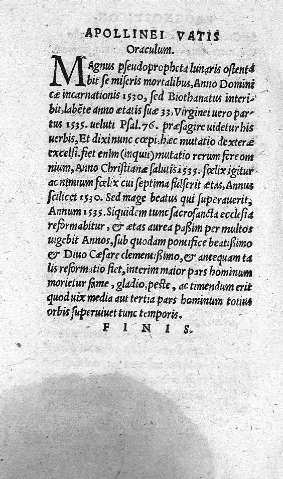 APOLLINEI VATIS
Oraculum.
MAgnus pseudopropheta lunaris ostenta
bit se miseris mortalibus, Anno Domini
cæ incarnationis 1530, sed Biothanatus interi-
bit, labẽte anno ætatis suæ 33. Virginei uero par
tus 1535. ueluti Psal. 76. præsagire uidetur his
uerbis, Et dixi nunc cœpi. hæc mutatio dexteræ
excelsi. fiet enim (inquit) mutatio rerum fere om
nium, Anno Christianæ salutis 1535. fœlix igitur
ac nimium fœlix cui septima fulserit ætas, Annus
scilicet 1530. Sed mage beatus qui superauerit,
Annum 1535. Siquidem tunc sacrosancta ecclesia
reformabitur, & ætas aurea passim per multos
uigebit Annos, sub quodam pontifice beatissimo
& Diuo Cæsare clementissimo, & antequam ta
lis reformatio fiet, interim maior pars hominum
morietur fame, gladio, peste, ac timendum erit
quod uix media aut tertia pars hominum totius
orbis superuiuet tunc temporis.
FINIS.